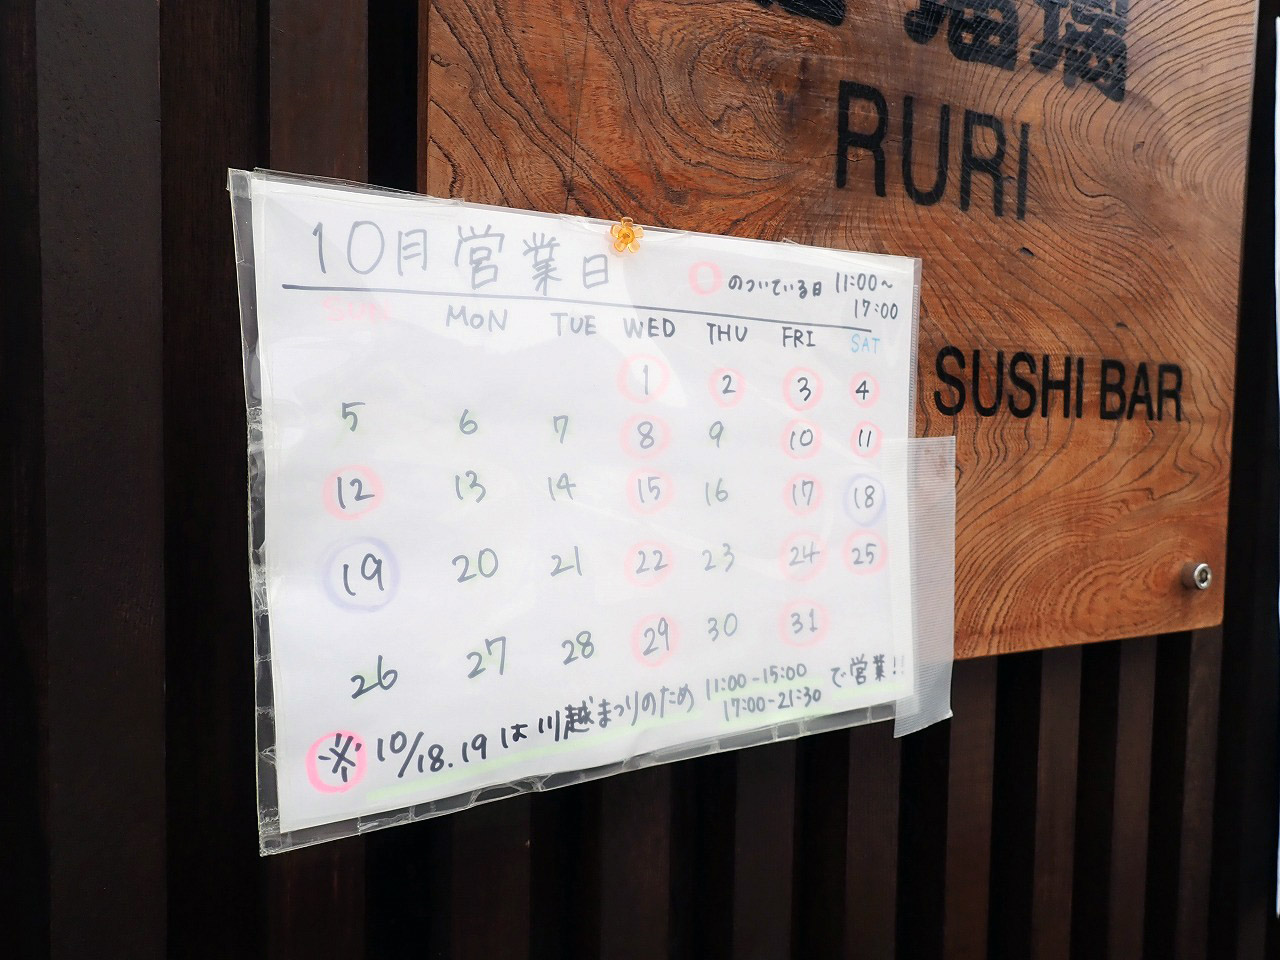 RURI
SUSHI BAR
10月営業日
のついている日 11:00〜
17:00
SUN MON TUE WED THU FRI SAT
1 2 3 4
5 6 7 8 9 10 11
12 13 14 15 16 17 18
19 20 21 22 23 24 25
26 27 28 29 30 31
※10/18.19は川越まつりのため 11:00-15:00 で営業!!
17:00-21:30